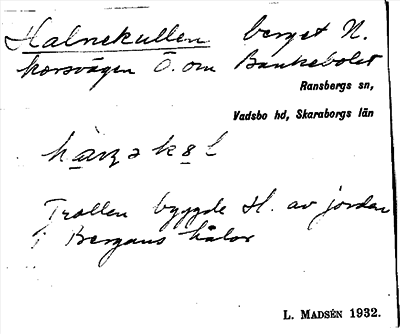 Halnekullen berget N.
korsvägen Ö. om Bankebolet
Ransbergs sn,
Vadsbo hd, Skaraborgs län
Trollen byggde H. av jorden
i Bergans hålor
L. MADSÉN 1932.